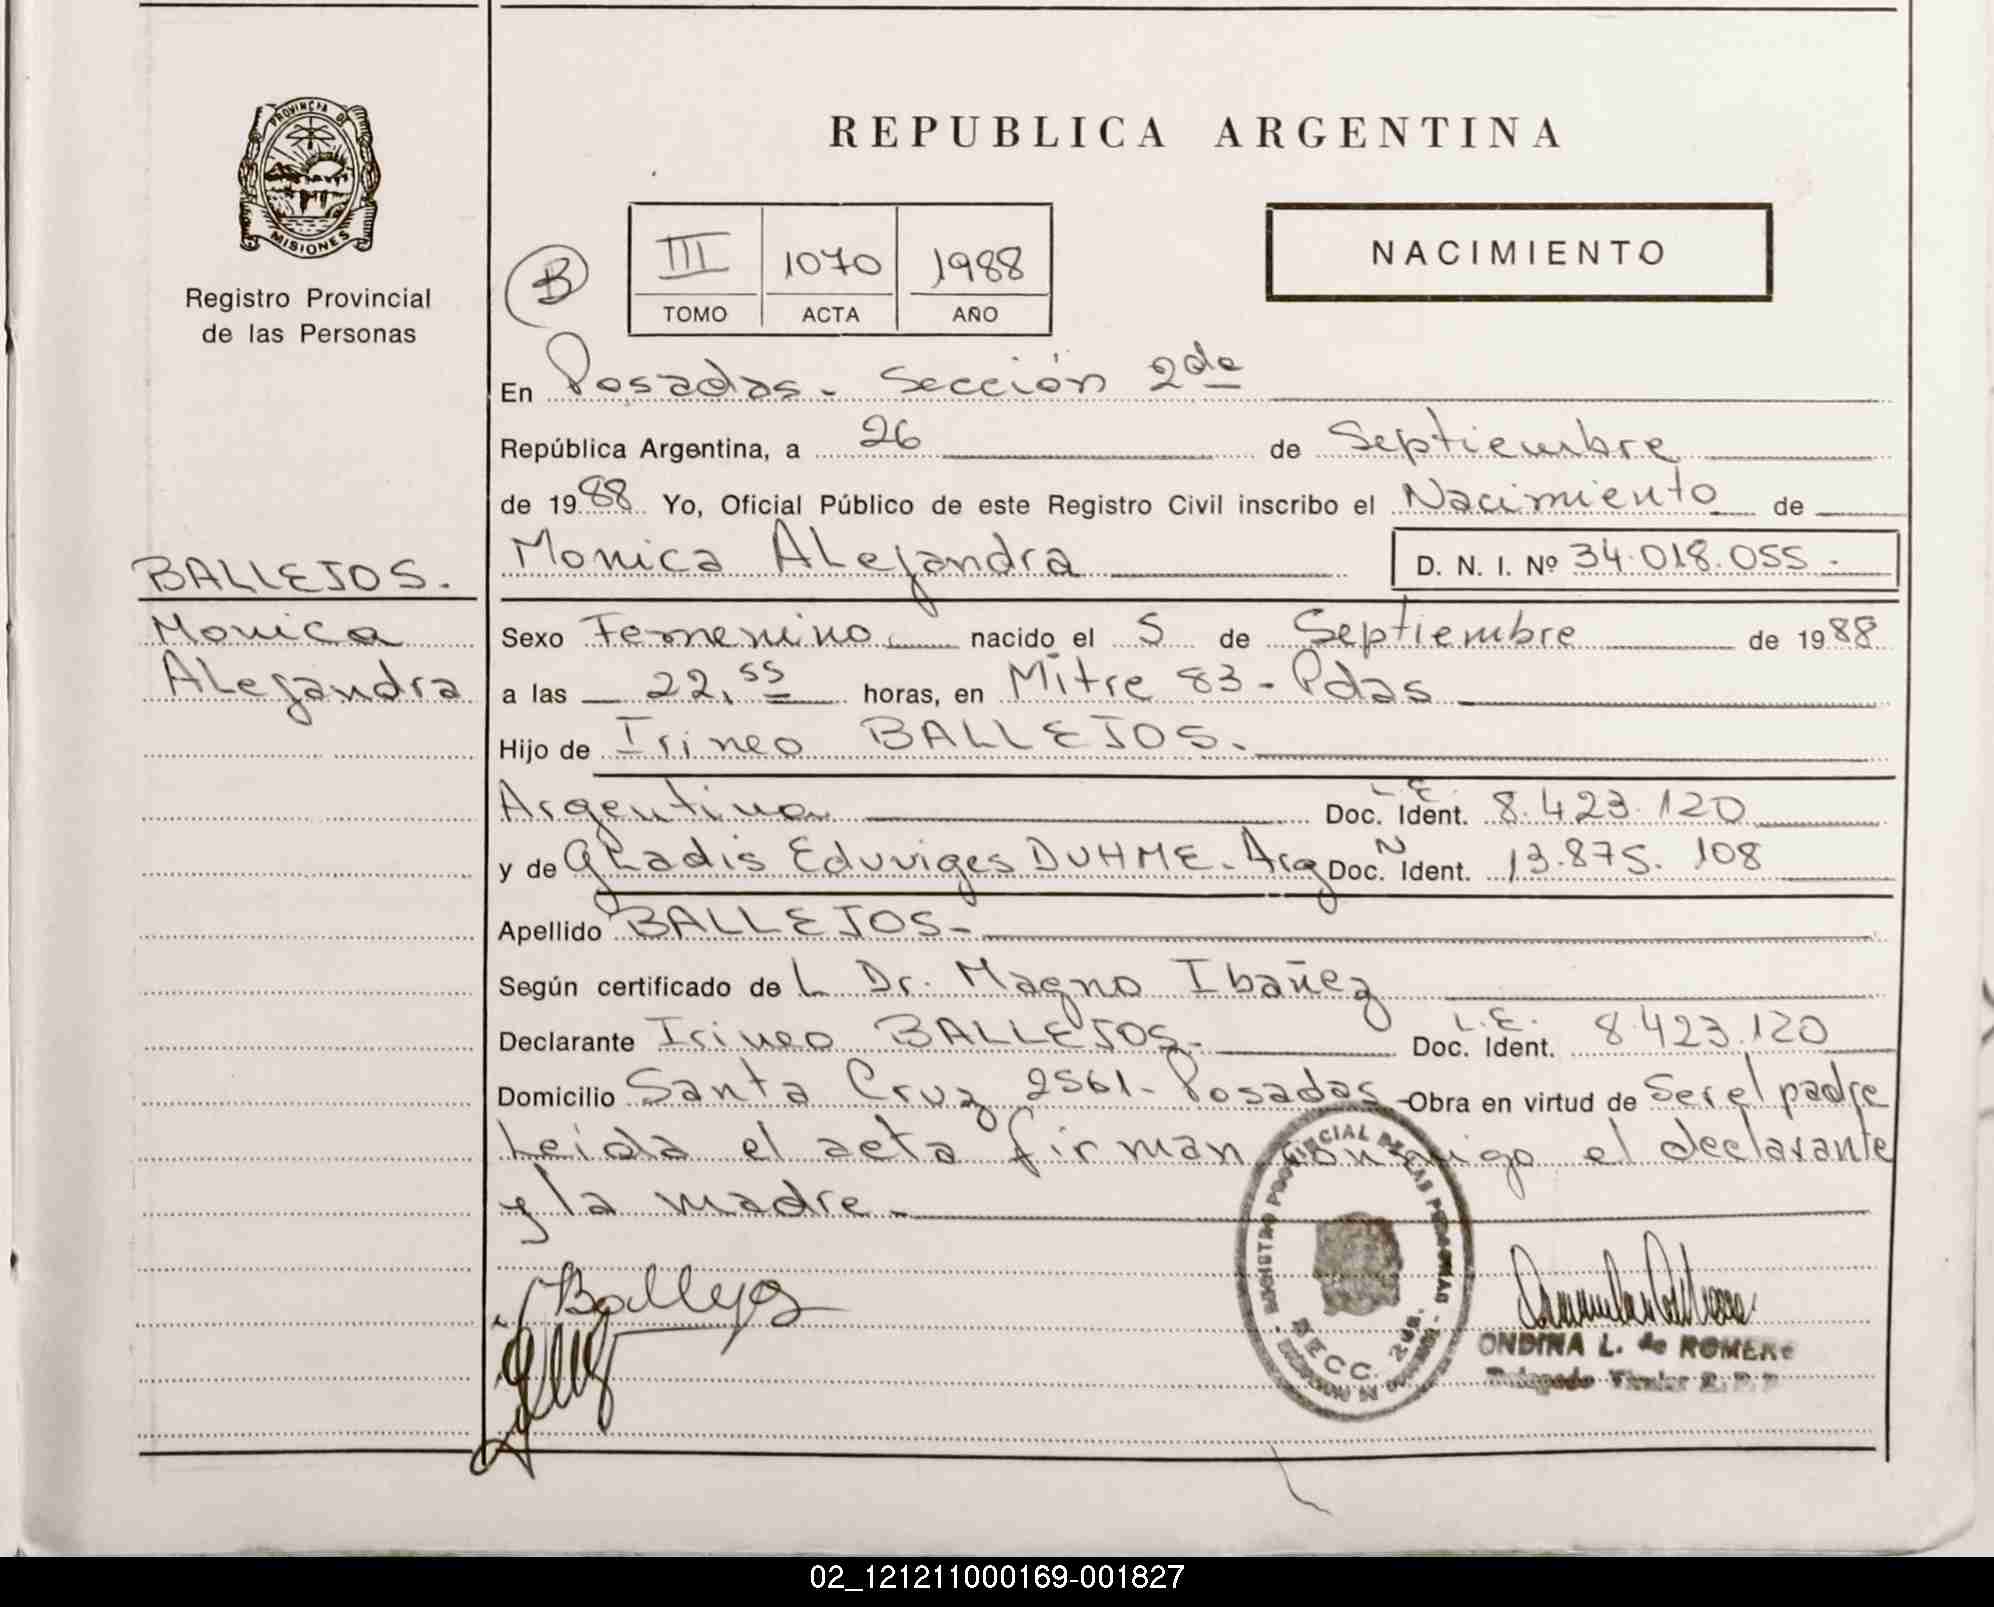 PROVINCIA DE
MISIONES
Registro Provincial
de las Personas
REPUBLICA ARGENTINA
B
III 1070 1988
TOMO ACTA AÑO
NACIMIENTO
En Posadas - Sección 2da
República Argentina, a 26 de Septiembre
de 1988 Yo, Oficial Público de este Registro Civil inscribo el Nacimiento de
Monica Alejandra D. N. I. Nº 34.018.055.-
BALLEJOS.
Monica
Alejandra
Sexo Femenino nacido el 5 de Septiembre de 1988
a las 22,55 horas, en Mitre 83 - Pdas
Hijo de Irineo BALLEJOS.
Argentino L.E. Doc. Ident. 8.423.120
y de Gladis Eduviges DUHME - Arg N Doc. Ident. 13.875.108
Apellido BALLEJOS-
Según certificado de L Dr. Magno Ibañez
Declarante Irineo BALLEJOS.- L.E. Doc. Ident. 8.423.120
Domicilio Santa Cruz 2561 - Posadas - Obra en virtud de Ser el padre
Leida el acta firman conmigo el declarante
y la madre.-
Ballejos
REGISTRO PROVINCIAL DE LAS PERSONAS
SECC. 2da.
ONDINA L. de ROMERO
02_121211000169-001827